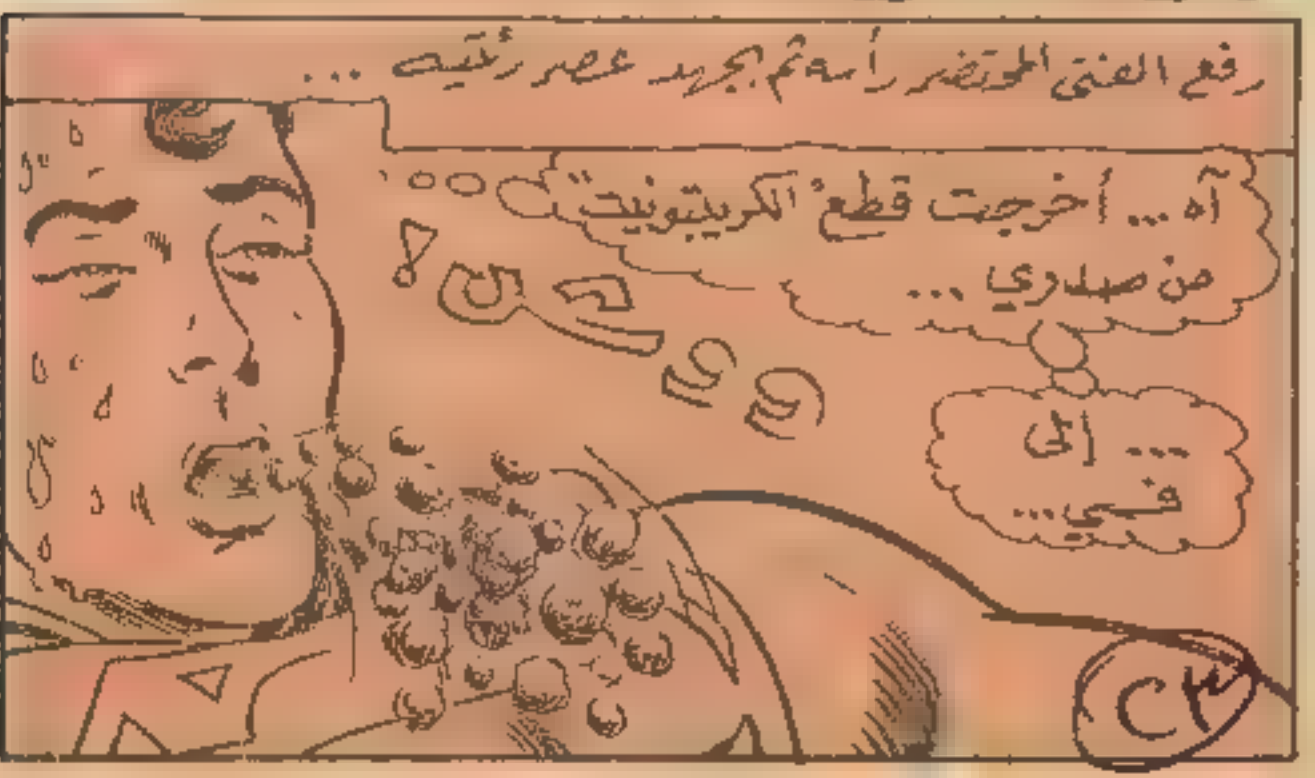 رفع الفتى المحتضر رأسه ثم بجهد عصر رئتيه ...
آه ... أخرجت قطع "الكريبتونيت"
من صدري ...
... إلى
فمي ...
CK